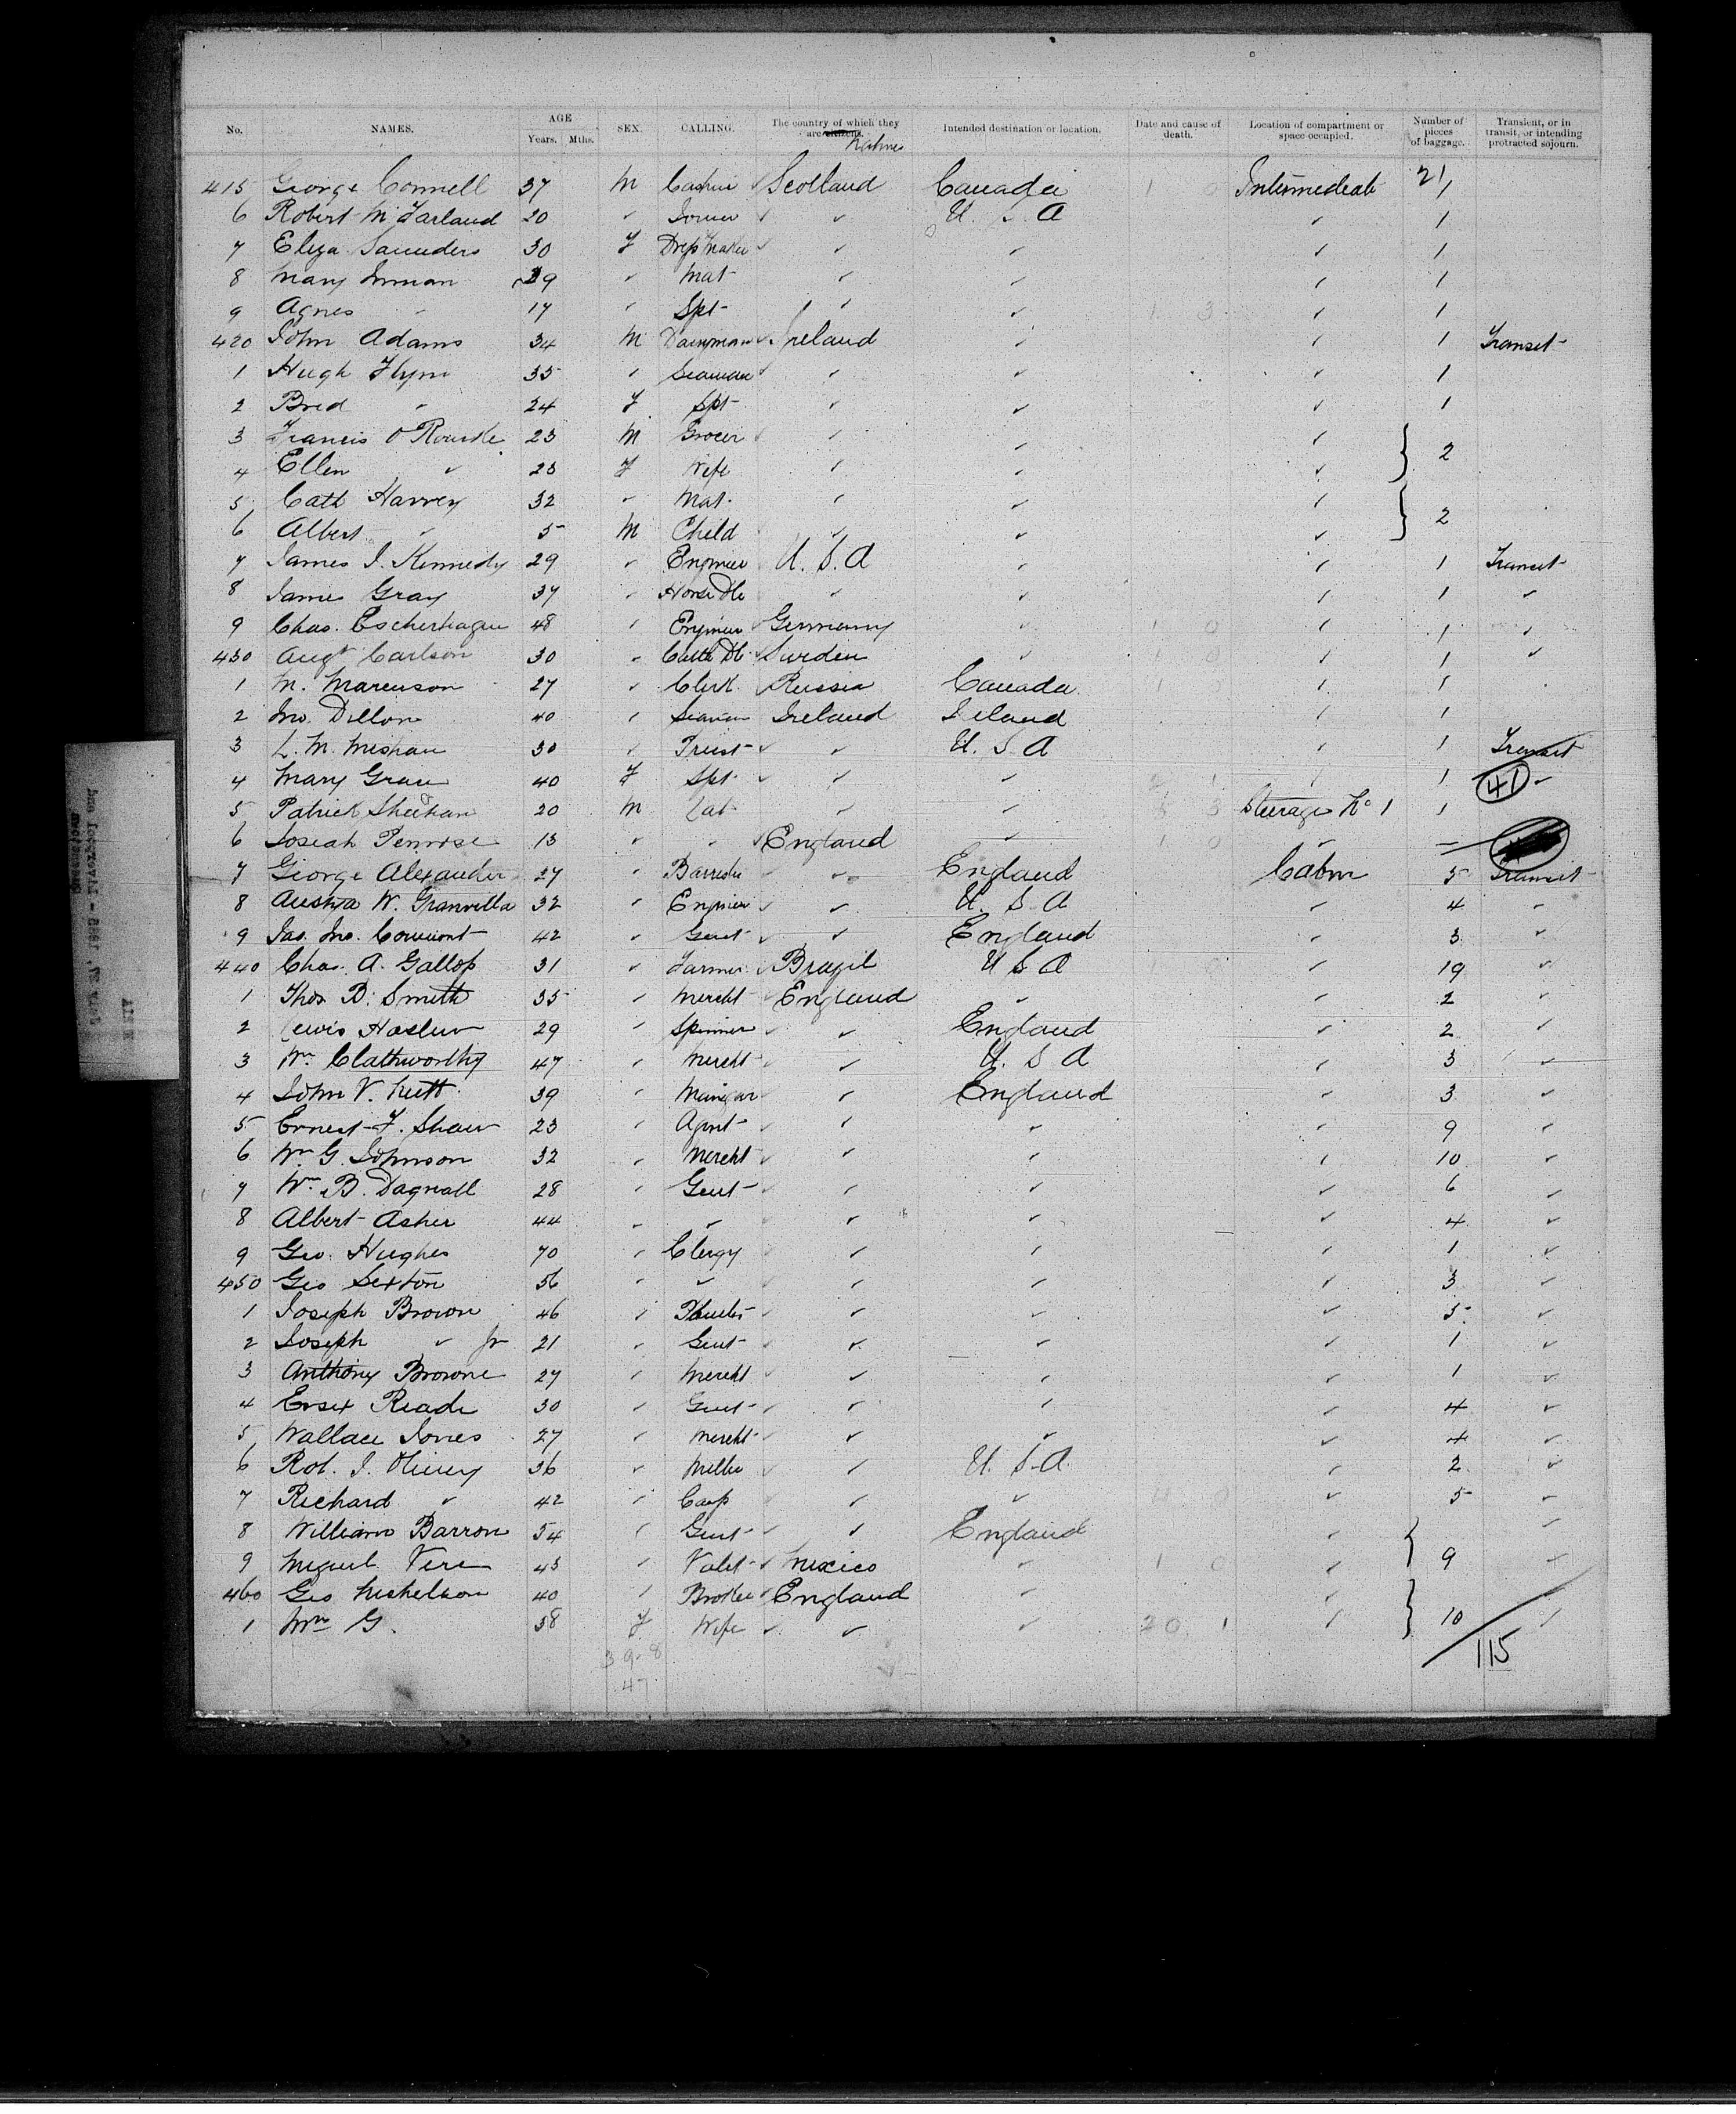 No. NAMES. AGE Years. Mths. SEX. CALLING. The country of which they are citizens. Natives Intended destination or location. Date and cause of death. Location of compartment or space occupied. Number of pieces of baggage. Transient, or in transit, or intending protracted sojourn.
415 George Connell 37 M Cashier Scotland Canada Intermediate 21
6 Robert McFarland 20 " Joiner " " U. S. A " 1
7 Eliza Saunders 30 F Dressmaker " " " 1
8 Mary Inman 29 " Mat " " " 1
9 Agnes " 17 " Spt " " " 1
420 John Adams 34 M Dairyman Ireland " " 1 Transit
1 Hugh Flynn 35 " Seaman " " " 1
2 Brid " 24 F Spt " " " 1
3 Francis O'Rourke 23 M Grocer " " " } 2
4 Ellen " 23 F Wife " " "
5 Cath Harvey 32 " Mat " " " } 2
6 Albert " 5 M Child " " "
7 James J. Kennedy 29 " Engineer U. S. A " " 1 Transit
8 James Gray 37 " Horse Dlr " " " 1 "
9 Chas. Escherhagen 48 " Engineer Germany " " 1 "
430 Augt Carlson 30 " Cattle Dlr Sweden " " 1 "
1 M. Marcuson 27 " Clerk Russia Canada " 1
2 Jno. Dillon 40 " Seaman Ireland Ireland " 1
3 L. M. 30 " Priest " " U. S. A " 1 Transit
4 Mary Grace 40 F Spt " " " " 1 41 "
5 Patrick Sheehan 20 M Lab " " Steerage No 1 1
6 Josiah Penrose 13 " " England " " -
7 George Alexander 27 " Barrister " England Cabin 5 Transit
8 W. Granvilla 32 " Engineer " " U. S. A " 4 "
9 Jas. Jno. 42 " Gent " " England " 3 "
440 Chas. A. Gallop 31 " Farmer Brazil U S A " 19 "
1 Thos B. Smith 35 " Mercht England " " 2 "
2 Lewis Haslem 29 " Spinner " " England " 2 "
3 Wm Clathworthy 47 " Mercht " U. S. A " 3 "
4 John V. Nutt 39 " Manager " England " 3 "
5 Ernest F. Shaw 23 " Agent " " " 9 "
6 Wm G. Johnson 32 " Mercht " " " 10 "
7 Wm B. Dagnall 28 " Gent " " " 6 "
8 Albert Asher 44 " " " " " 4 "
9 Geo. Hughes 70 " Clergy " " " 1 "
450 Geo Sexton 56 " " " " " 3 "
1 Joseph Brown 46 " " " " 5 "
2 Joseph " Jr 21 " Gent " " " 1 "
3 Anthony Browne 27 " Mercht " " " 1 "
4 Essex Reade 30 " Gent " " " 4 "
5 Wallace Jones 27 " Mercht " " " 4 "
6 Rob. J. 36 " Miller " " U. S. A. " 2 "
7 Richard " 42 " " " " 5 "
8 William Barron 54 " Gent " England " } 9 "
9 Miguel Vera 43 " Valet Mexico " " "
460 Geo Nickelson 40 " Broker England " " } 10
1 Mrs G. 38 F Wife " " " "
39-8
47
115